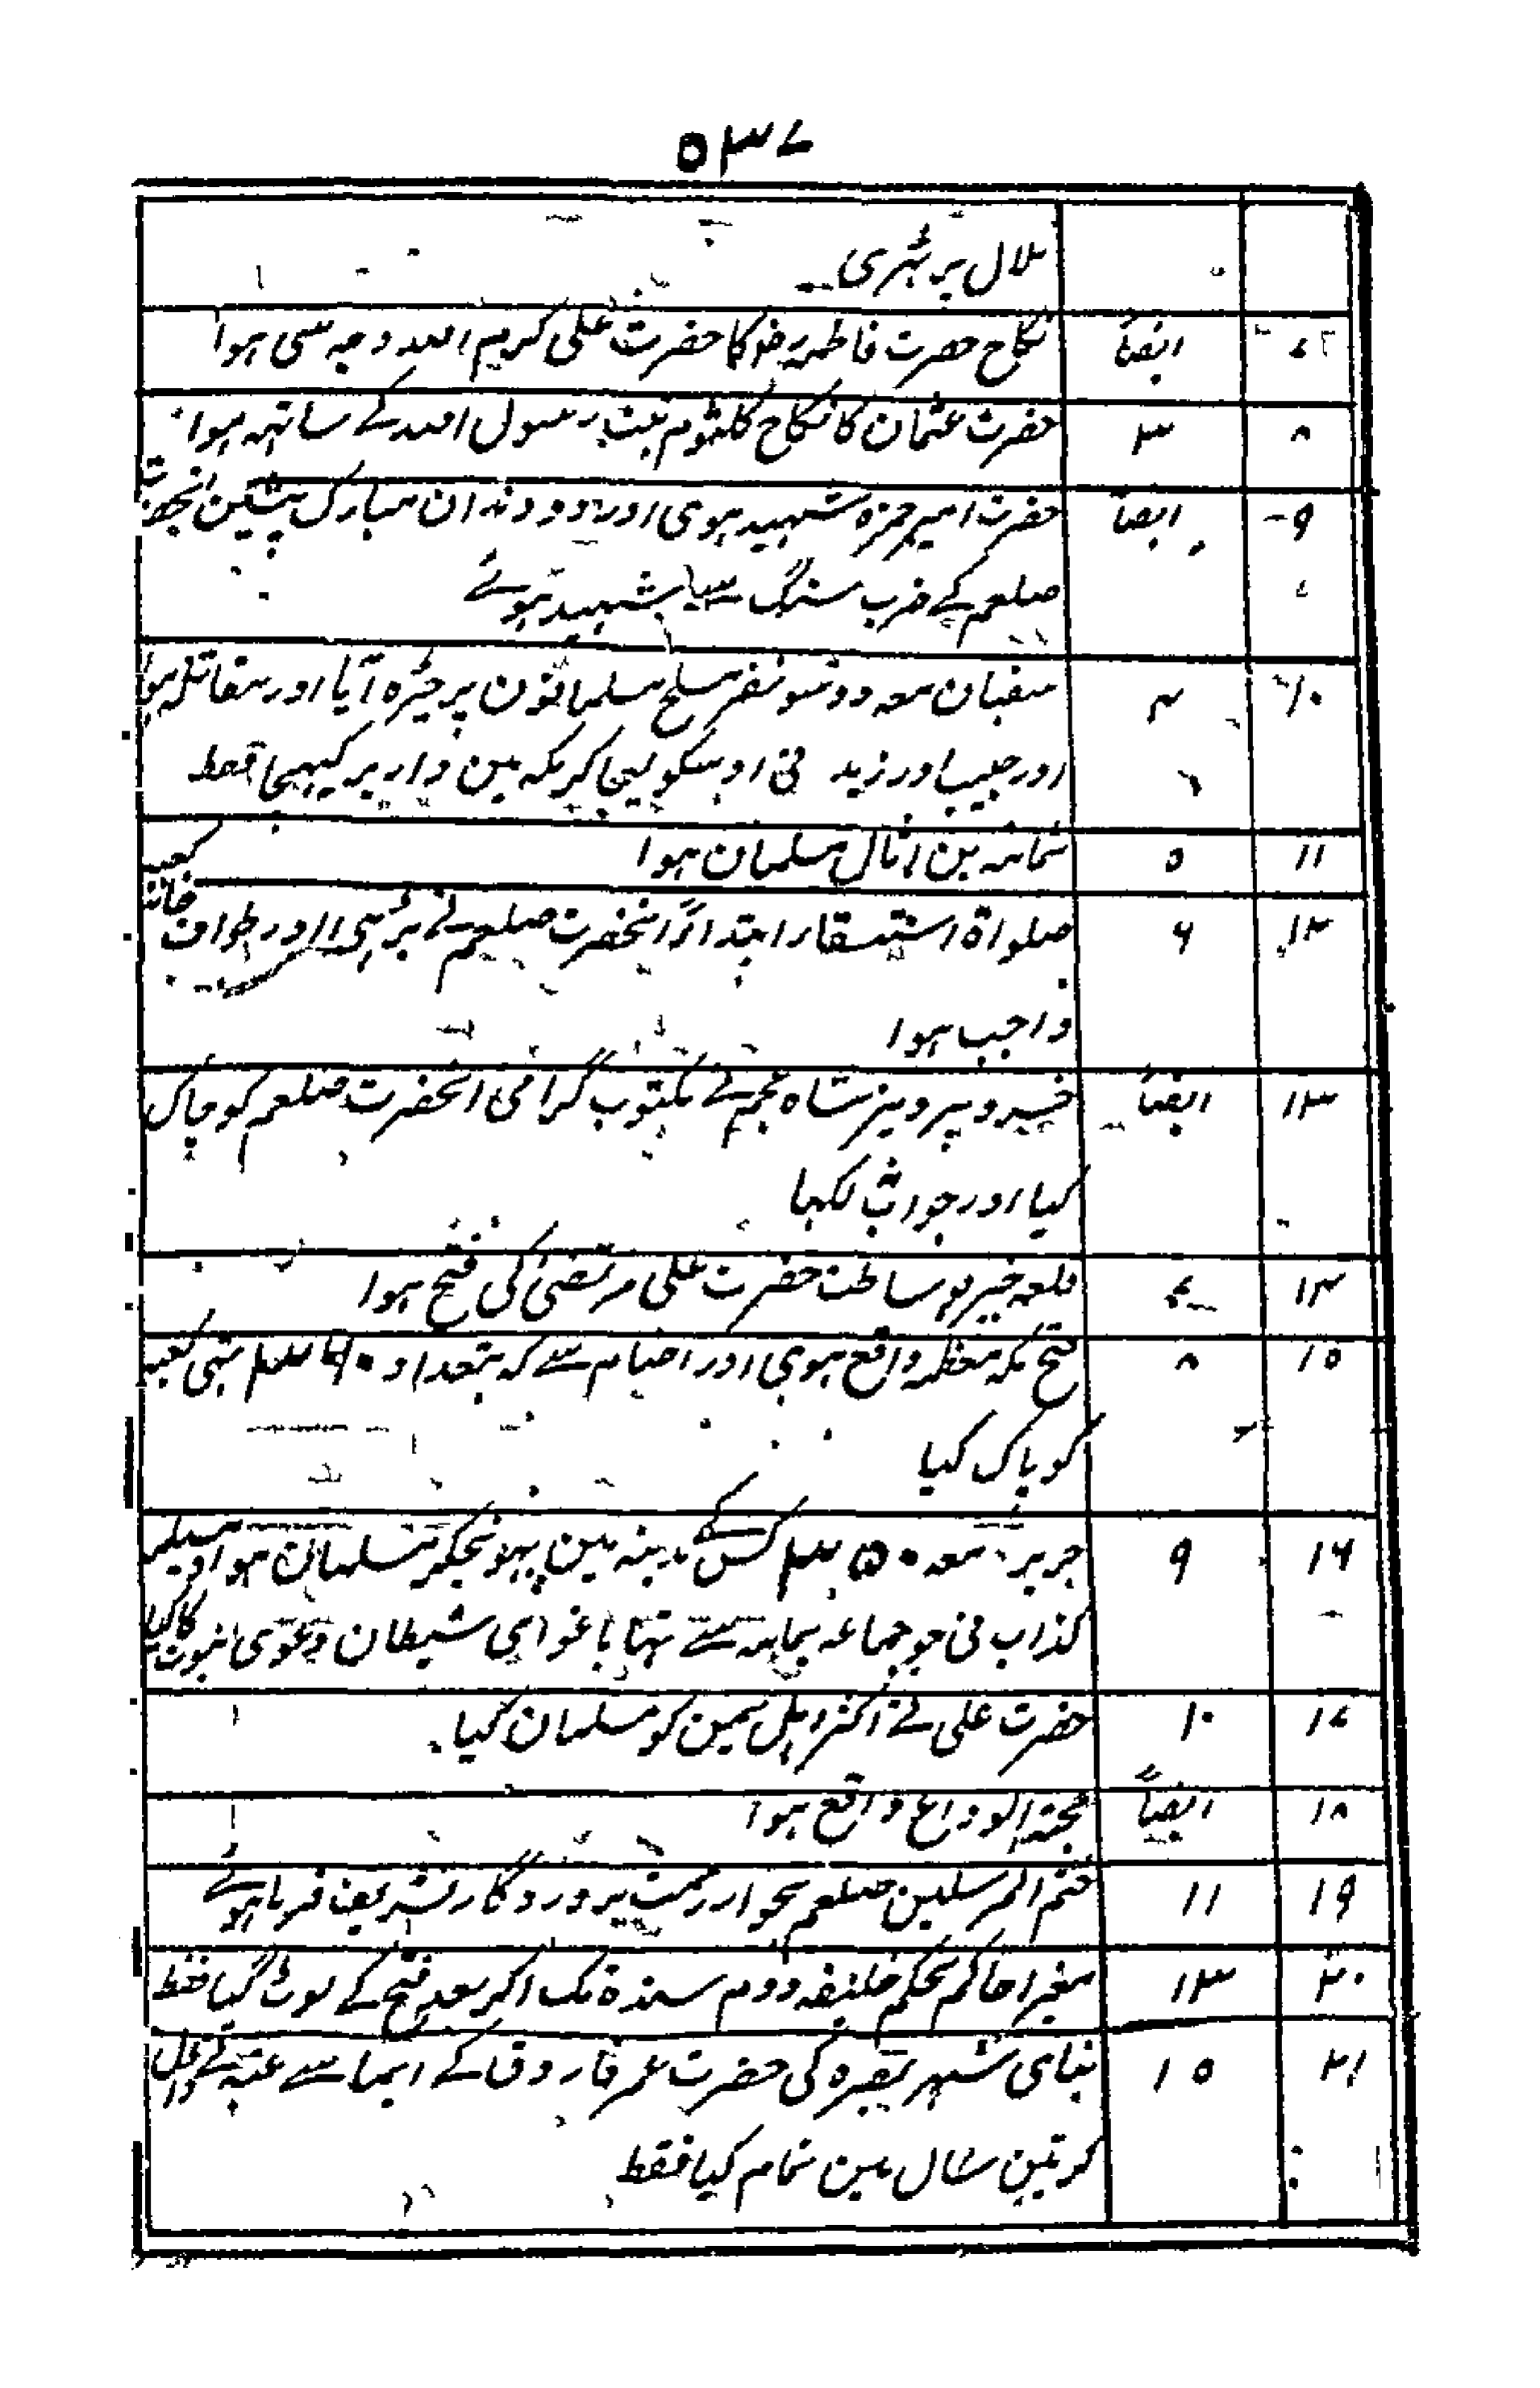 ۵۳۷
ہلال پر ٹہری
۷ ایضاً نکاح حضرت فاطمہ رضہ کا حضرت علی کریم اللہ وجہ سی ہوا
۸ ۳ حضرت عثمان کا نکاح کلثوم بنت رسول اللہ کے ساتہہ ہوا
۹ ایضاً حضرت امیر حمزہ شہید ہوی اور دو دندان مبارک پیشین آنحضرت
صلعم کے ضرب سنگ سے شہید ہوئے
۱۰ ۴ سفیان معہ دو سو نفر مسلح مسلمانون پر چڑہ آیا اور مقاتلہ ہوا
اور حبیب اور زید فی اوسکو لیجا کر مکہ مین دار پر کہیچا فقط
۱۱ ۵ ثمامہ بن اثال مسلمان ہوا
۱۲ ۶ صلواة استسقار ابتداءً آنحضرت صلعم نے پڑہی اور طواف خانہ کعبہ
واجب ہوا
۱۳ ایضاً خسرو پرویز شاہ عجم نے مکتوب گرامی آنحضرت صلعم کو چاک
کیا اور جواب لکہا
۱۴ ۷ قلعہ خیبر بوساطت حضرت علی مرتضیٰ کی فتح ہوا
۱۵ ۸ فتح مکہ معظمہ واقع ہوی اور اصنام سے کہ بتعداد ۳۶۰ تہی کعبہ
کو پاک کیا
۱۶ ۹ جریر معہ ۱۵۰ کس کے مدینہ مین پہونچکر مسلمان ہوا اور مسیلمہ
کذاب فی جو جماعہ یمامہ سے تہا باغوای شیطان دعوی نبوت کا کیا
۱۷ ۱۰ حضرت علی نے اکثر اہل یمین کو مسلمان کیا
۱۸ ایضاً حجة الوداع واقع ہوا
۱۹ ۱۱ ختم المرسلین صلعم بجوار رحمت پروردگار تشریف فرما ہوئے
۲۰ ۱۳ مغیرا حاکم بحکم خلیفہ دوم سندہ تک اکر بعد فتح کے لوٹ گیا فقط
۲۱ ۱۵ بنای شہر بصرہ کی حضرت عمر فاروق کے ایما سے عتبہ نے
کر تین سال مین تمام کیا فقط